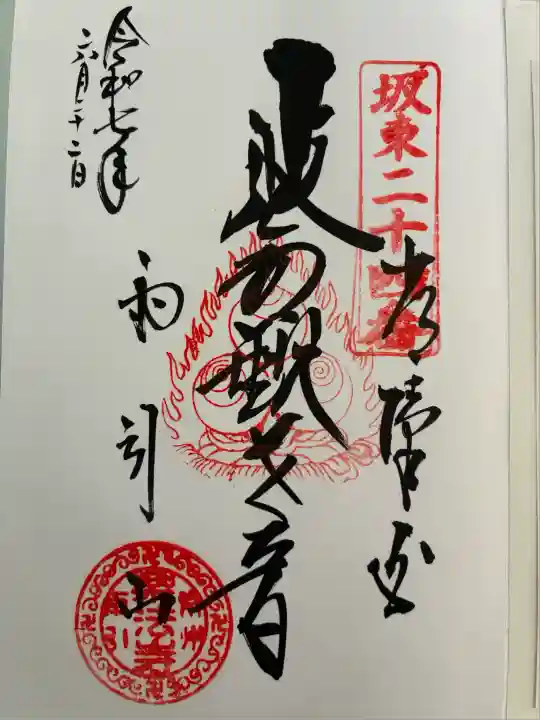 坂東二十四番
常陸国
延命観世音
雨引山
令和七年
六月二十二日